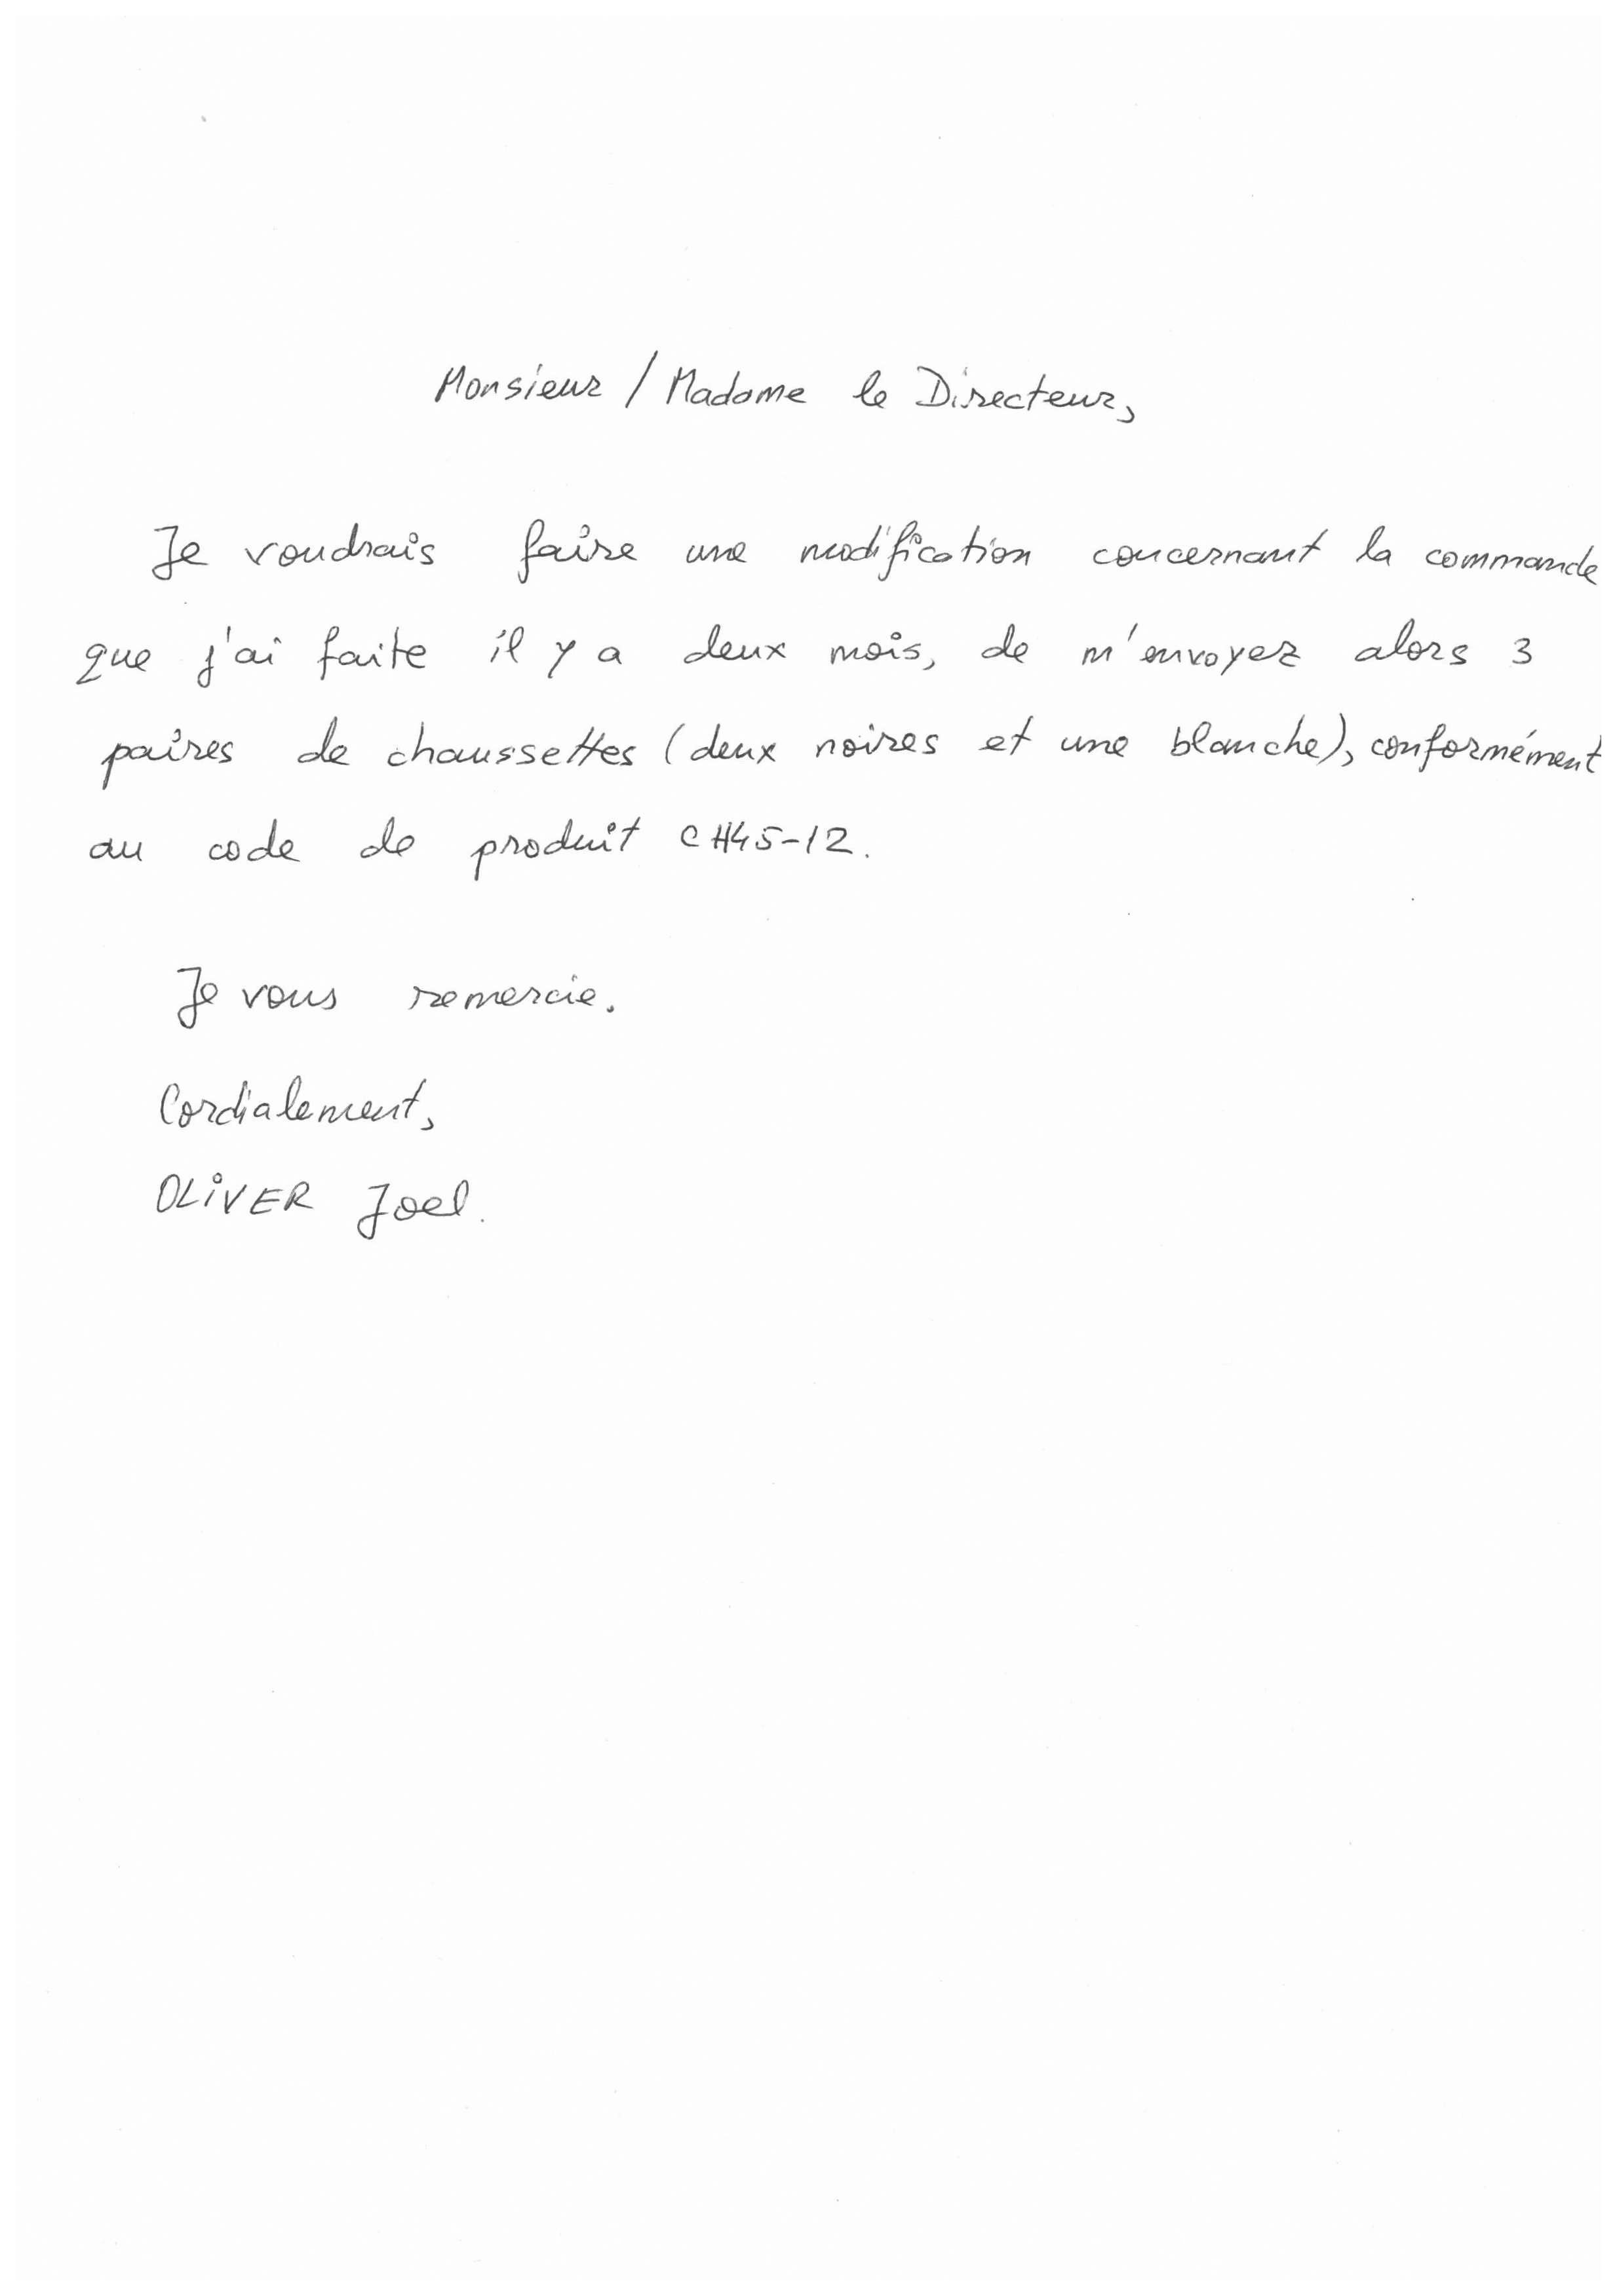 Monsieur / Madame le Directeur,
Je voudrais faire une modification concernant la commande
que j'ai faite il y a deux mois, de m'envoyez alors 3
paires de chaussettes (deux noires et une blanche), conformément
au code de produit CH45-12.
Je vous remercie.
Cordialement,
OLIVER Joel.